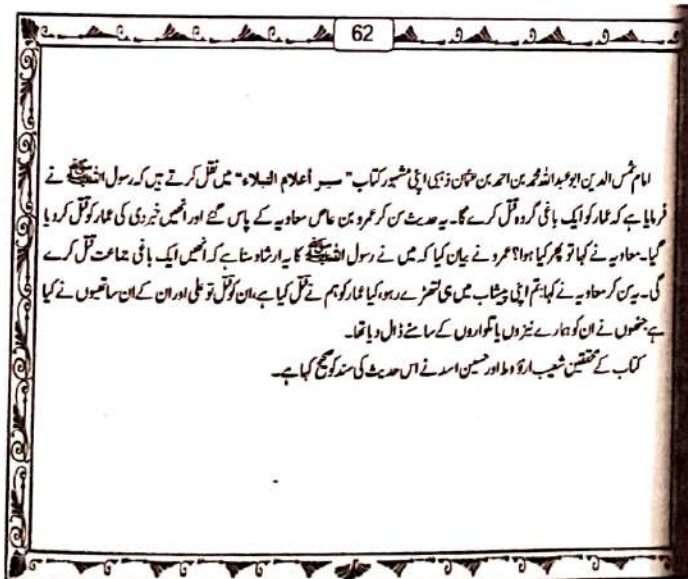 62
امام شمس الدین ابو عبد اللہ محمد بن احمد بن عثمان ذہبی اپنی مشہور کتاب "سیر أعلام النبلاء" میں نقل کرتے ہیں کہ رسول اللہ ﷺ نے
فرمایا ہے کہ عمار کو ایک باغی گروہ قتل کرے گا۔ یہ حدیث سن کر عمرو بن عاص معاویہ کے پاس گئے اور انھیں خبر دی کی عمار کو قتل کر دیا
گیا۔ معاویہ نے کہا تو پھر کیا ہوا؟ عمرو نے بیان کیا کہ میں نے رسول اللہ ﷺ کا یہ ارشاد سنا ہے کہ انھیں ایک باغی جماعت قتل کرے
گی۔ یہ سن کر معاویہ نے کہا: تم اپنی پیشاب میں ہی لتھڑے رہو، کیا عمار کو ہم نے قتل کیا ہے، ان کو قتل تو علی اور ان کے ان ساتھیوں نے کیا
ہے جنھوں نے ان کو ہمارے نیزوں یا تلواروں کے سامنے ڈال دیا تھا۔
کتاب کے محققین شعیب ارؤوط اور حسین اسد نے اس حدیث کی سند کو صحیح کہا ہے۔